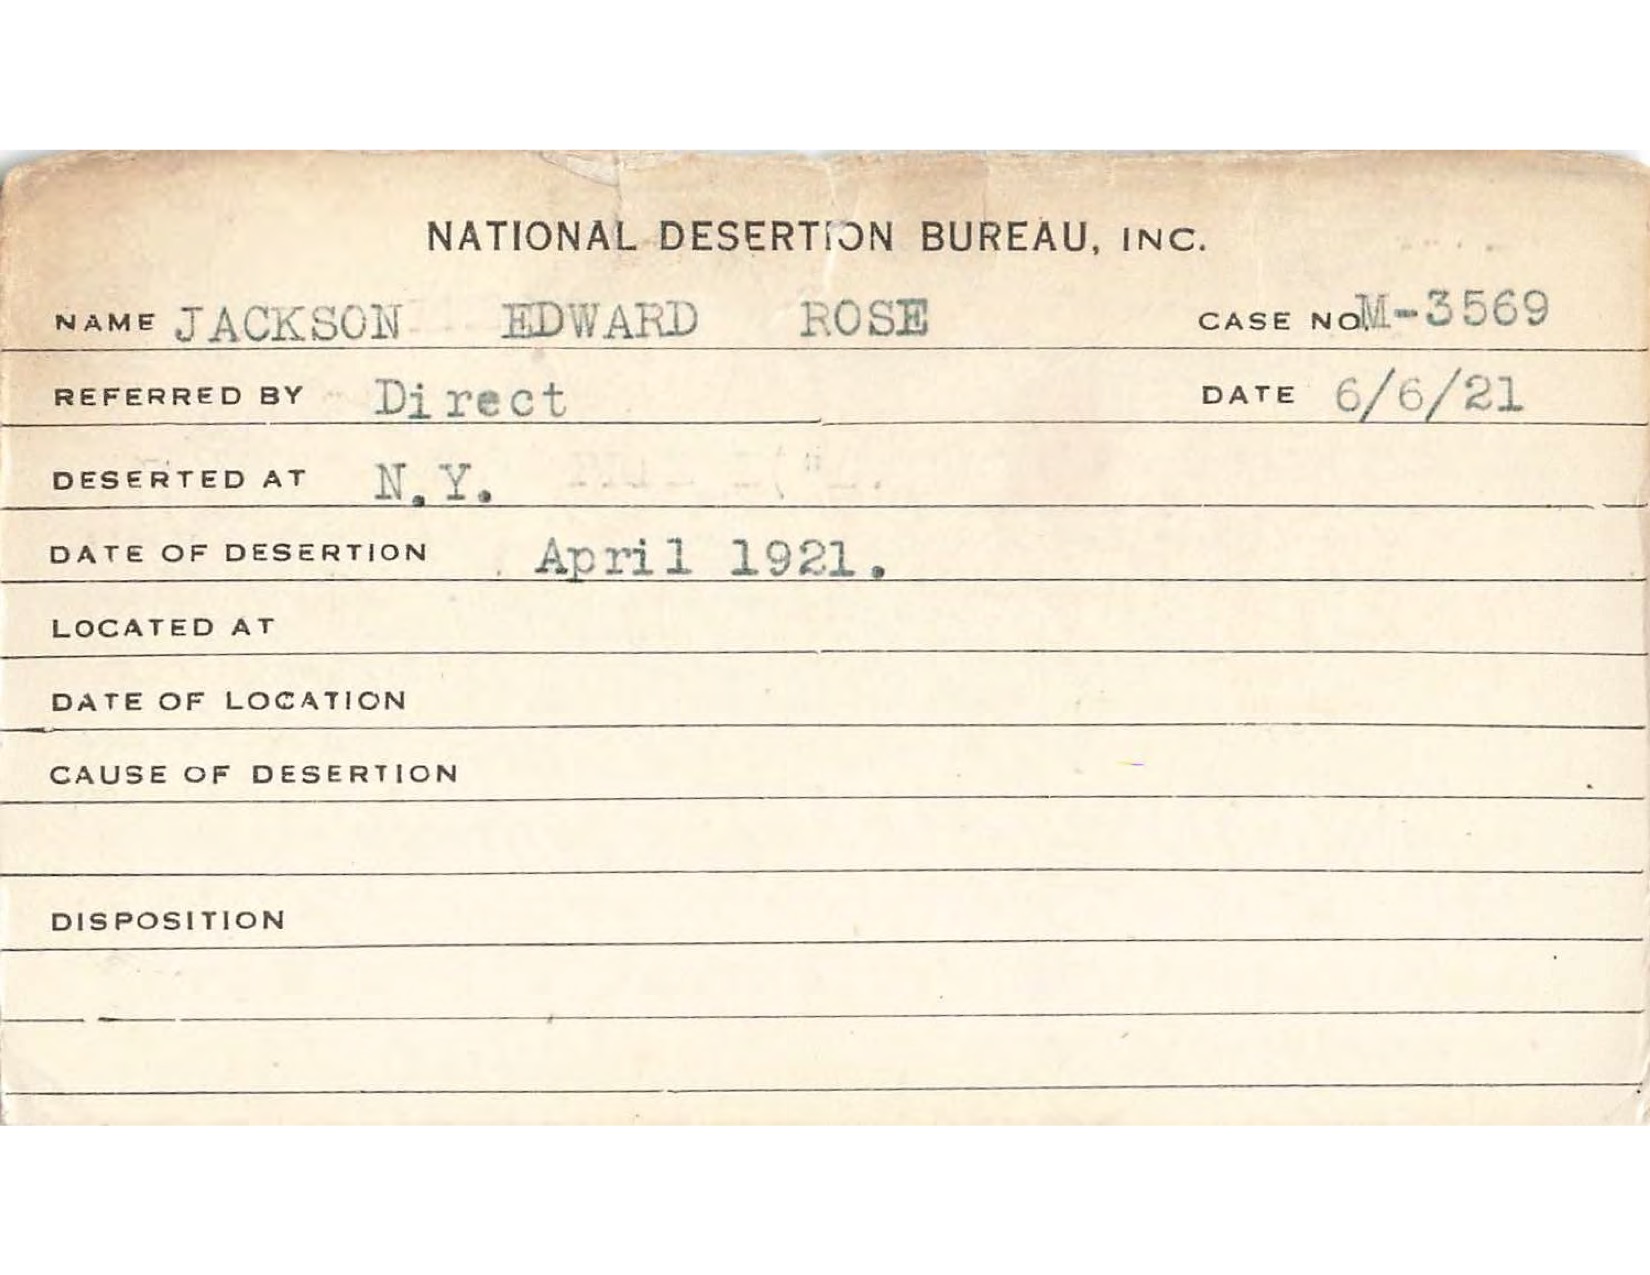 NATIONAL DESERTION BUREAU, INC.
NAME JACKSON EDWARD ROSE CASE NO. M-3569
REFERRED BY Direct DATE 6/6/21
DESERTED AT N.Y.
DATE OF DESERTION April 1921.
LOCATED AT
DATE OF LOCATION
CAUSE OF DESERTION
DISPOSITION